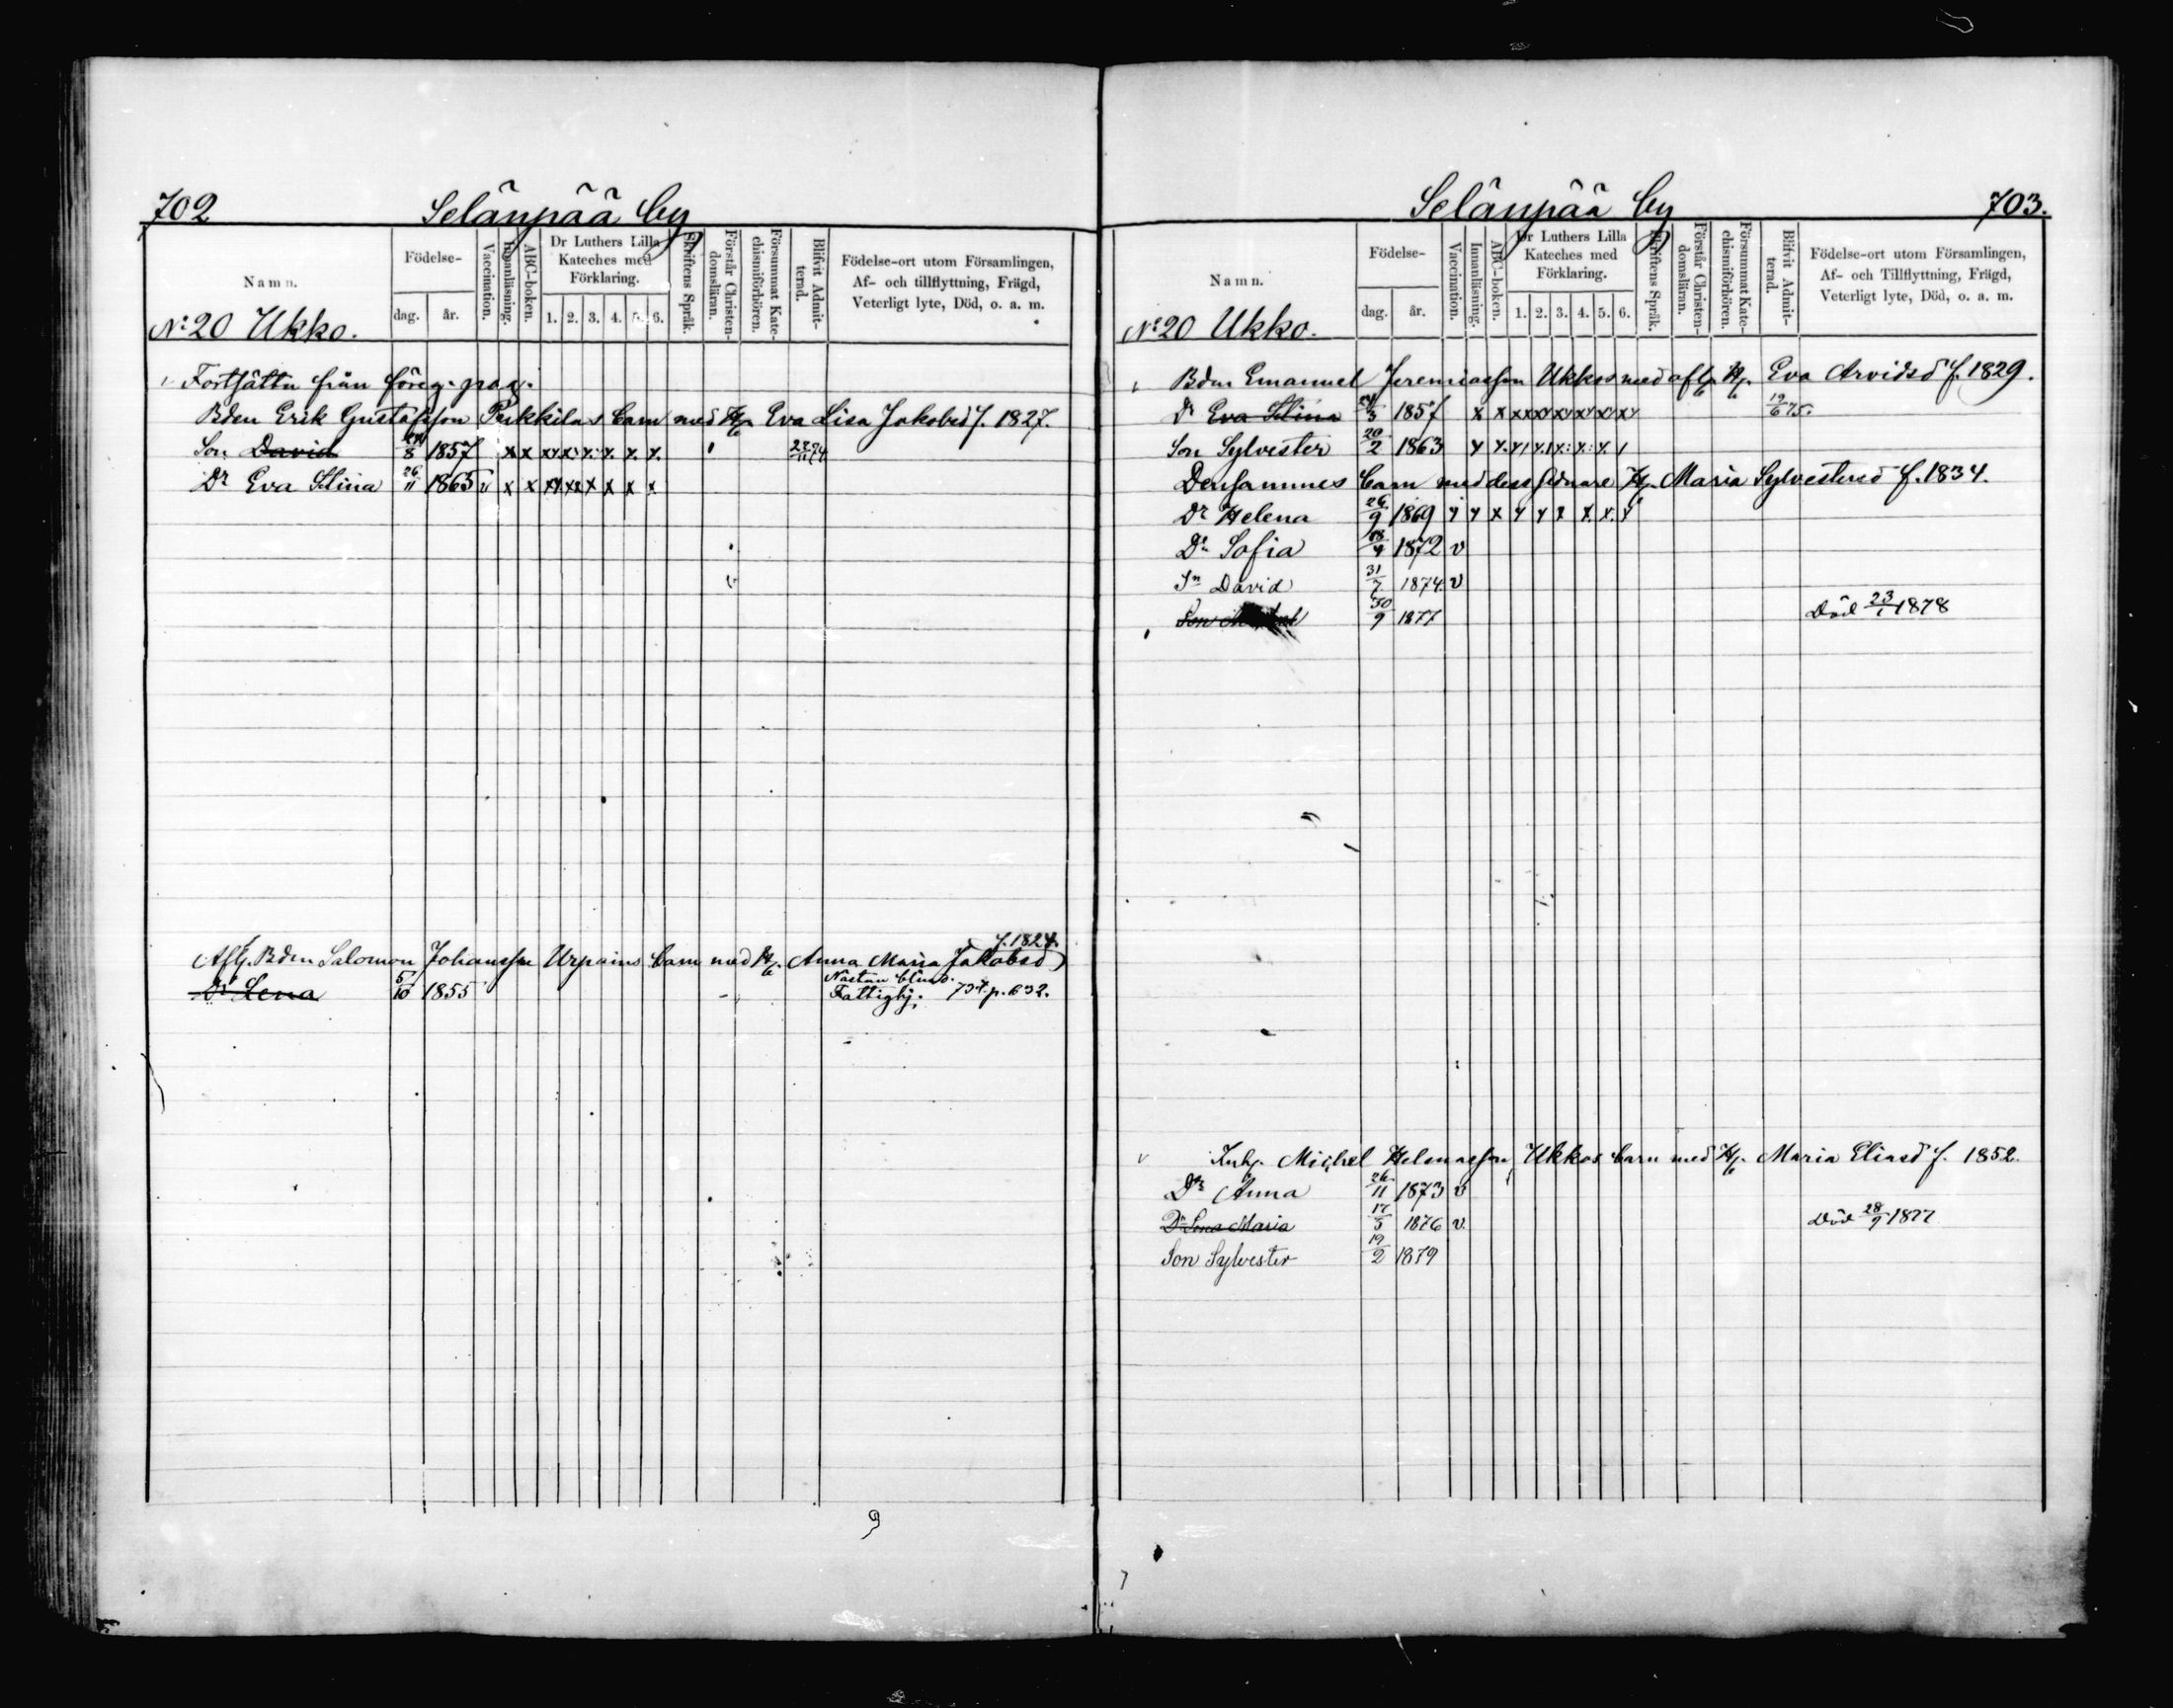 702 Selänpää by
Namn. Födelse- dag. år. Vaccination. Innanläsning. ABC-boken. Dr Luthers Lilla Kateches med Förklaring. 1. 2. 3. 4. 5. 6. Skriftens Språk. Förstår Christendomsläran. Försummat Katechismiförhören. Blifvit Admitterad. Födelse-ort utom Församlingen, Af- och tillflyttning, Frägd, Veterligt lyte, Död, o. a. m.
No 20 Ukko.
Fortsättn från föreg. pag.
Bden Erik Gustafsson Pukkilas barn med H. Eva Lisa Jakobsd f. 1827.
Son David 8 1857 x x x x x x x x
Dr Eva Stina 26/11 1865 v x x x x x x x x
Afl. Bden Salomon Johansson Urpains barn med H. Anna Maria Jakobsd f. 1824.
Dr Lena 5/10 1855 Nästan blind. Fattighj. 734. p. 632.
9
Selänpää by 703.
Namn. Födelse- dag. år. Vaccination. Innanläsning. ABC-boken. Dr Luthers Lilla Kateches med Förklaring. 1. 2. 3. 4. 5. 6. Skriftens Språk. Förstår Christendomsläran. Försummat Katechismiförhören. Blifvit Admitterad. Födelse-ort utom Församlingen, Af- och Tillflyttning, Frägd, Veterligt lyte, Död, o. a. m.
No 20 Ukko.
Bdm Emanuel Jeremiasson Ukkos med afl. H. Eva Arvidsd f. 1829.
Dr Eva Stina 24/3 1857 x x x x x x x x 19/6 75.
Son Sylvester 20/2 1863
Densammes barn med dess sednare H. Maria Sylvestersd f. 1834.
Dr Helena 26/9 1869
Dr Sofia 18/4 1872 v
Sn David 31/7 1874 v
Son 30/9 1877 Död 23/1 1878
Inh. Michel Ukkos barn med H. Maria Eliasd f. 1852.
Dr Anna 26/11 1873 v
Dr Lena Maria 17/5 1876 v. Död 28/9 1877
Son Sylvester 19/2 1879